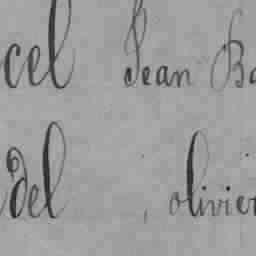 cel Jean Ba
del, olivier